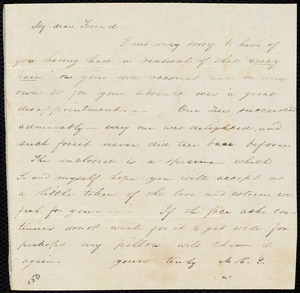 My dear Friend.
I was very sorry to hear of
you having had a renewal of that
pain on your own account and on our
own so for your absence was a great
disappointment — Our Tree succeeded
admirably — every one was delighted, and
such fruit never did tree bear before.
The enclosed is a specimen which
S. and myself hope you will accept as
a little token of the love and esteem we
feel for you — If the face ache con
tinues dont wait for it to get well for
perhaps my pillow will charm it
again. yours truly M. C.
150